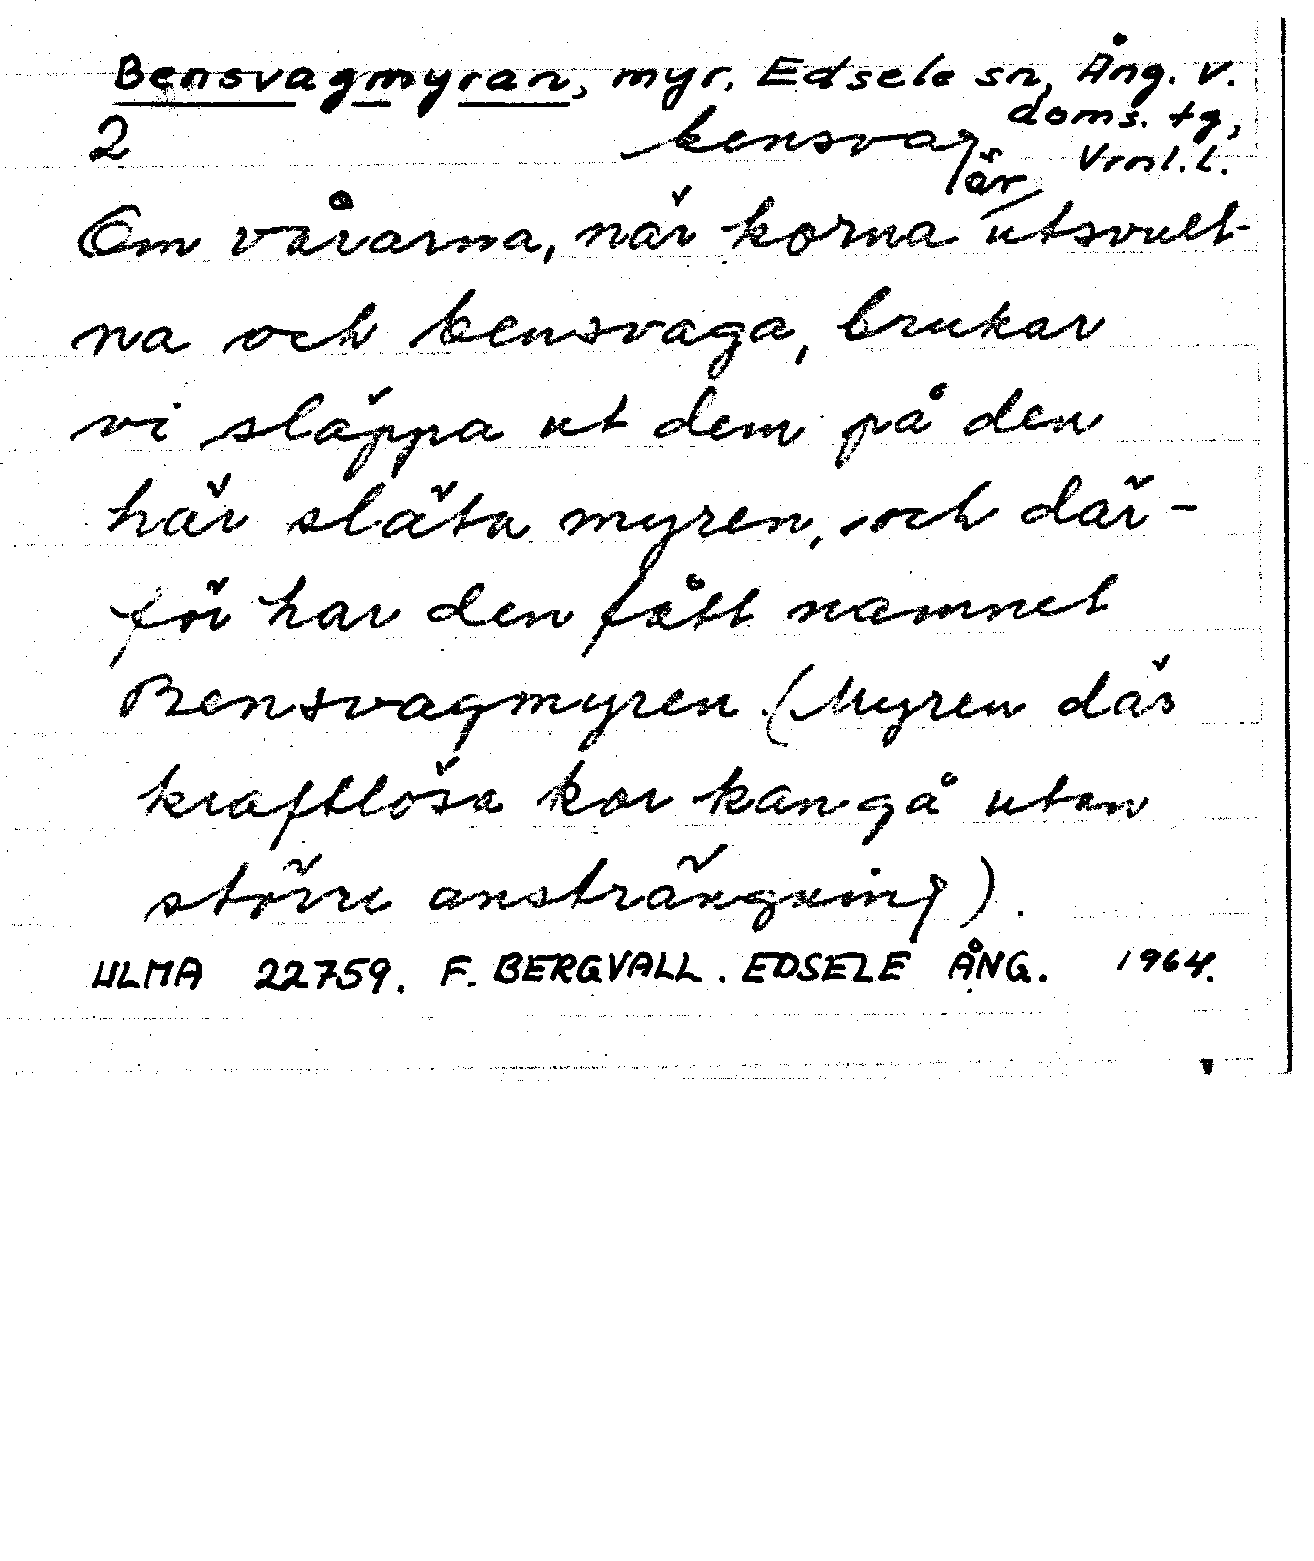 Bensvagmyran, myr. Edsele sn, Ång. v.
doms. tg,
2 bensvag Vrml.l.
är
Om vårarna, när korna utsvult-
na och bensvaga, brukar
vi släppa ut dem på den
här släta myren, och där-
för har den fått namnet
Bensvagmyren (Myren där
kraftlösa kor kan gå utan
större ansträngning).
ULMA 22759. F. BERGVALL. EDSELE ÅNG. 1964.